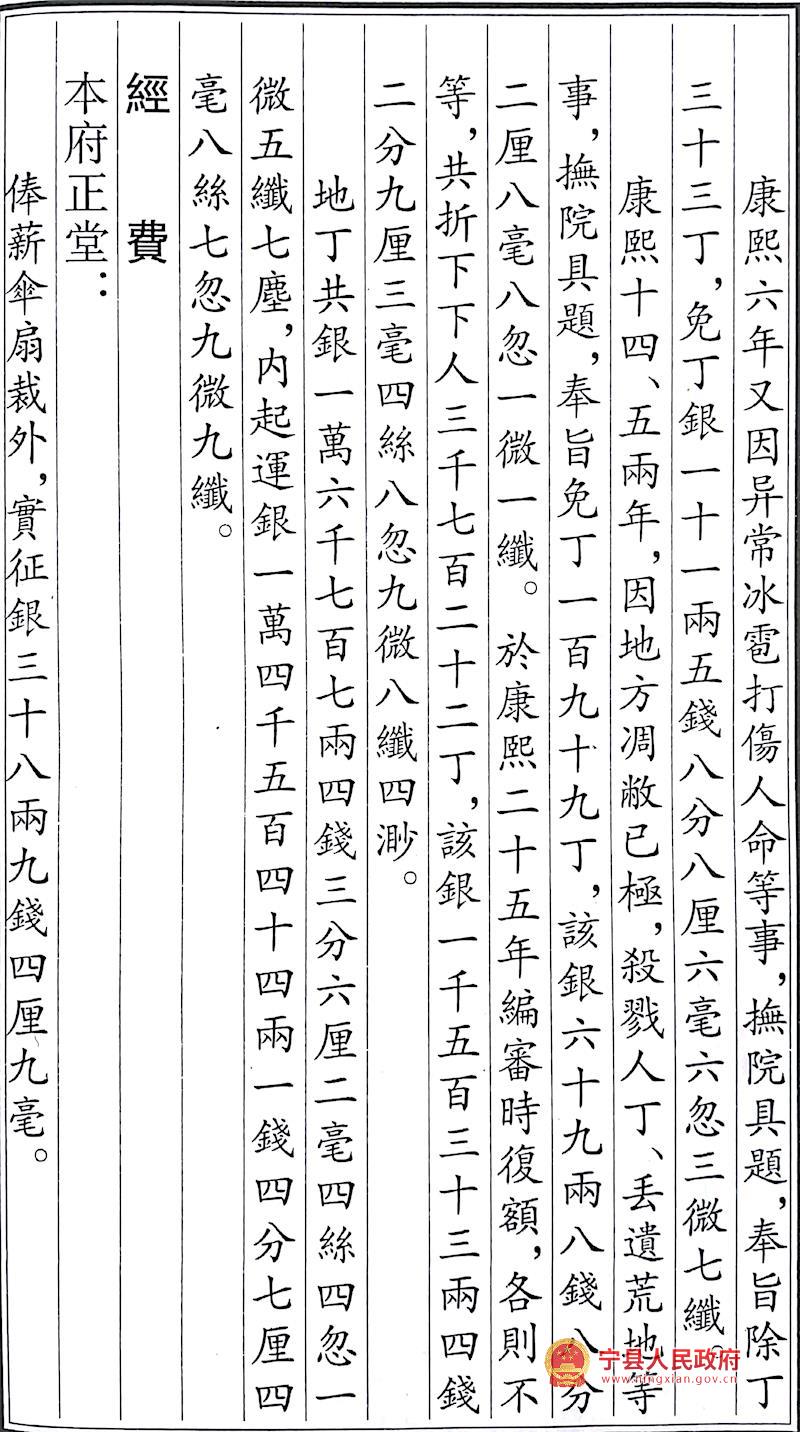 康熙六年又因异常冰雹打傷人命等事，撫院具題，奉旨除丁
三十三丁，免丁銀一十一兩五錢八分八厘六毫六忽三微七纖。
康熙十四、五兩年，因地方凋敝已極，殺戮人丁、丢遺荒地等
事，撫院具題，奉旨免丁一百九十九丁，該銀六十九兩八錢八分
二厘八毫八忽一微一纖。於康熙二十五年編審時復額，各則不
等，共折下下人三千七百二十二丁，該銀一千五百三十三兩四錢
二分九厘三毫四絲八忽九微八纖四渺。
地丁共銀一萬六千七百七兩四錢三分六厘二毫四絲四忽一
微五纖七塵，内起運銀一萬四千五百四十四兩一錢四分七厘四
毫八絲七忽九微九纖。
經費
本府正堂：
俸薪傘扇裁外，實征銀三十八兩九錢四厘九毫。
宁县人民政府
www.ningxian.gov.cn